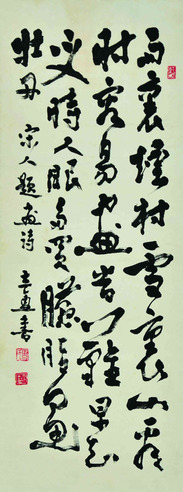 雨裏煙村雪裏山看
時容易畫時難早知
不入時人眼多買臙脂畫
牡丹 宋人題畫詩 書